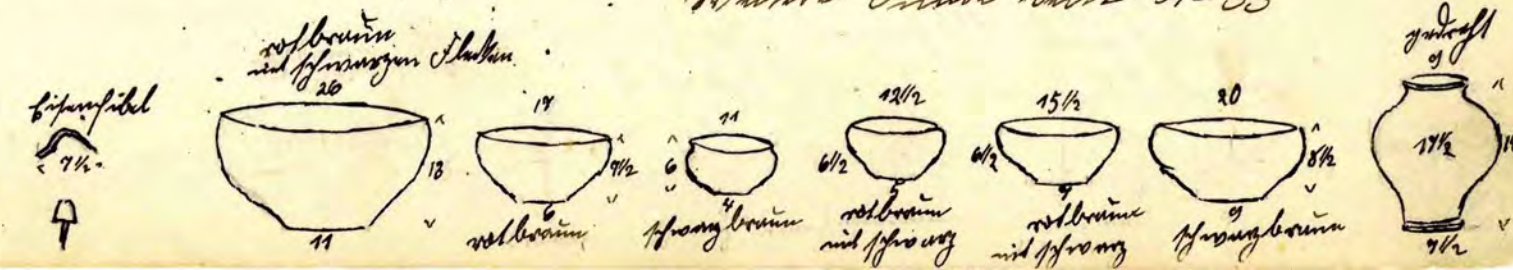 rotbraun
mit schwarzen Flecken.
26
13
11
Eisenfibel
7½
6
rotbraun
11
6
4
schwarzbraun
12½
6½
5
rotbraun
mit schwarz
15½
6½
rotbraun
mit schwarz
20
8½
9
schwarzbraun
gedreht
9
17½
7½